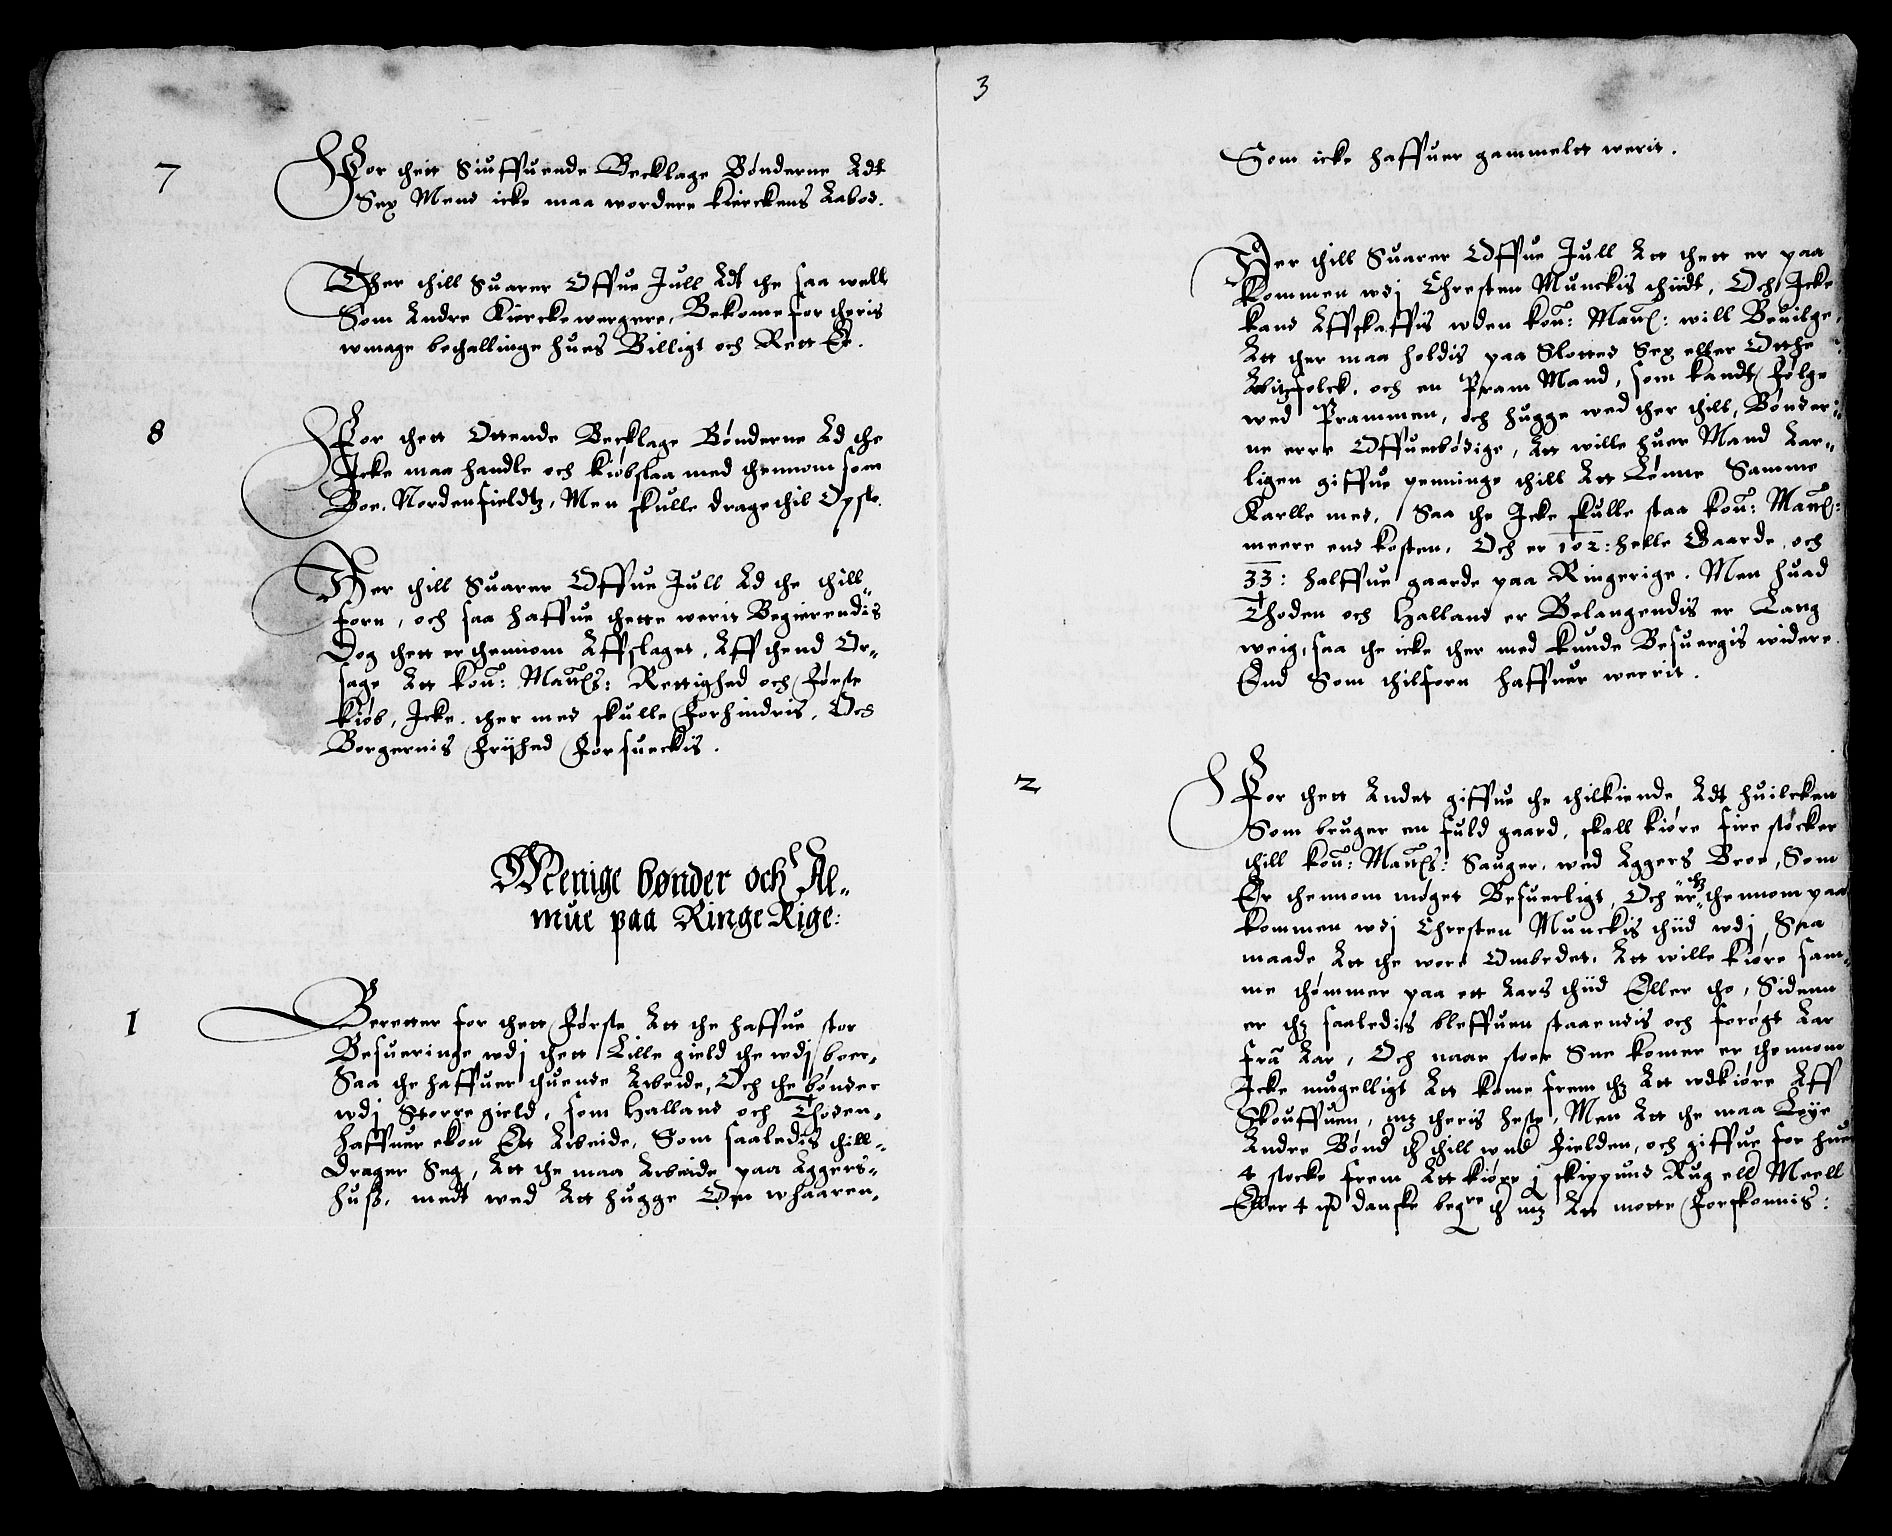 3
7
For thett Siuffuende Becklage Bønderne Adt
Sex Mend icke maa wordere Kierckens Aabod.
Ther thill Suarer Offue Jull Adt the saa well
Som Andre Kierckewergere, Bekome for theris
wmage bethallinge hues Billigt och Rett Er.
8
For thett Ottende Becklage Bønderne Ad the
Icke maa handle och kiøbslaa med thennom som
Boe Nordenfieldtz, Men skulle drage thil Opslo.
Her thill Suarer Offue Jull Ad the thill
forn, och saa haffue thette werit Begierendis
Dog thett er thennom Affslaget, Aff thend Or-
sage Att kou: Mautts: Rettighed och Første
kiøb, Icke ther med skulle forhindris, Och
Borgernis Fryhed Forsueckis.
Menige bønder och Al-
mue paa RingeRige:
1
Beretter for thett Første Att the haffue stor
Besueringe wdj thett Lille gield the wdj boer,
Saa the haffuer thuende Arbeide, Och the bønder
wdj Storre gield, som Halland och Thoden,
haffuer ekon Ett Arbeide, Som saaledis thill-
Drager Seg, Att the maa Arbeide paa Aggers-
huss, medt wed Att hugge Om whaaren,
Som icke haffuer gammelt werit.
Her thill Suarer Offue Jull Att thett er paa
kommen wdj Christen Munckis thiidt, Och Icke
kand Affskaffis wden kou: Mautt: will Beuilge,
Att ther maa holdis paa Slotted Sex eller Otthe
Arbitzfolck, och en Pram Mand, som kandt følge
wed Prammen, och hugge wed ther thill, Bønder-
ne erre Offuerbødige, Att wille huer Mand Aar-
ligen giffue penninge thill Att Lønne Samme
Karlle med, Saa the Icke skulle staa kou: Mautt:
meere end kosten, Och er 102: helle Gaarde, och
33: halffue gaarde paa Ringerige. Men huad
Thoden och Halland er Belangendis er Lang
weig, saa the icke ther med kunde Besuergis widere
End Som thilforn haffuer werrit.
2
For thett Andet giffue the thilkiende Adt huilcken
Som bruger en fuld gaard, skall kiøre fire støcker
thill kou: Mautts: Sauger, wed Aggers Broe, Som
Er thennom møget Besuerligt, Och er thz thennom paa
kommen wdj Christen Munckis thiid wdj Saa
maade Att the wore Ombedet, Att wille kiøre sam-
me thømmer paa ett Aars thiid Eller tho, Sidenn
er thz saaledis bleffuen staaendis och forøgt Aar
fra Aar, Och naar stoer Sne komer er thennom
Icke mugelligt Att kome frem thz Att wdkiøre Aff
Skouffuen, mz theris heste, Men Att the maa Leye
Andre Bønder thill wed Fielden, och giffue for huer
4 stocke frem Att kiøre j skippund Rug eller Meell
Eller 4 danske begre th mz Att motte Forskonnis: